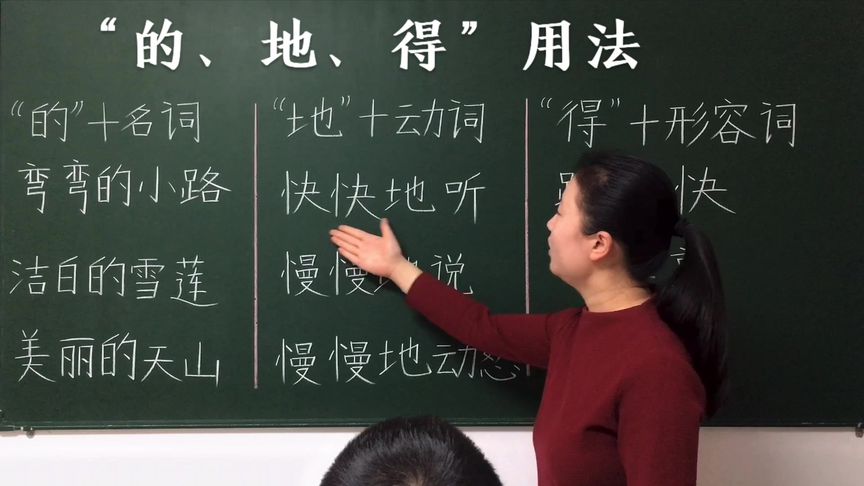 “的、地、得”用法
“的”+名词
弯弯的小路
洁白的雪莲
美丽的天山
“地”+动词
快快地听
慢慢地说
慢慢地动
“得”+形容词
快